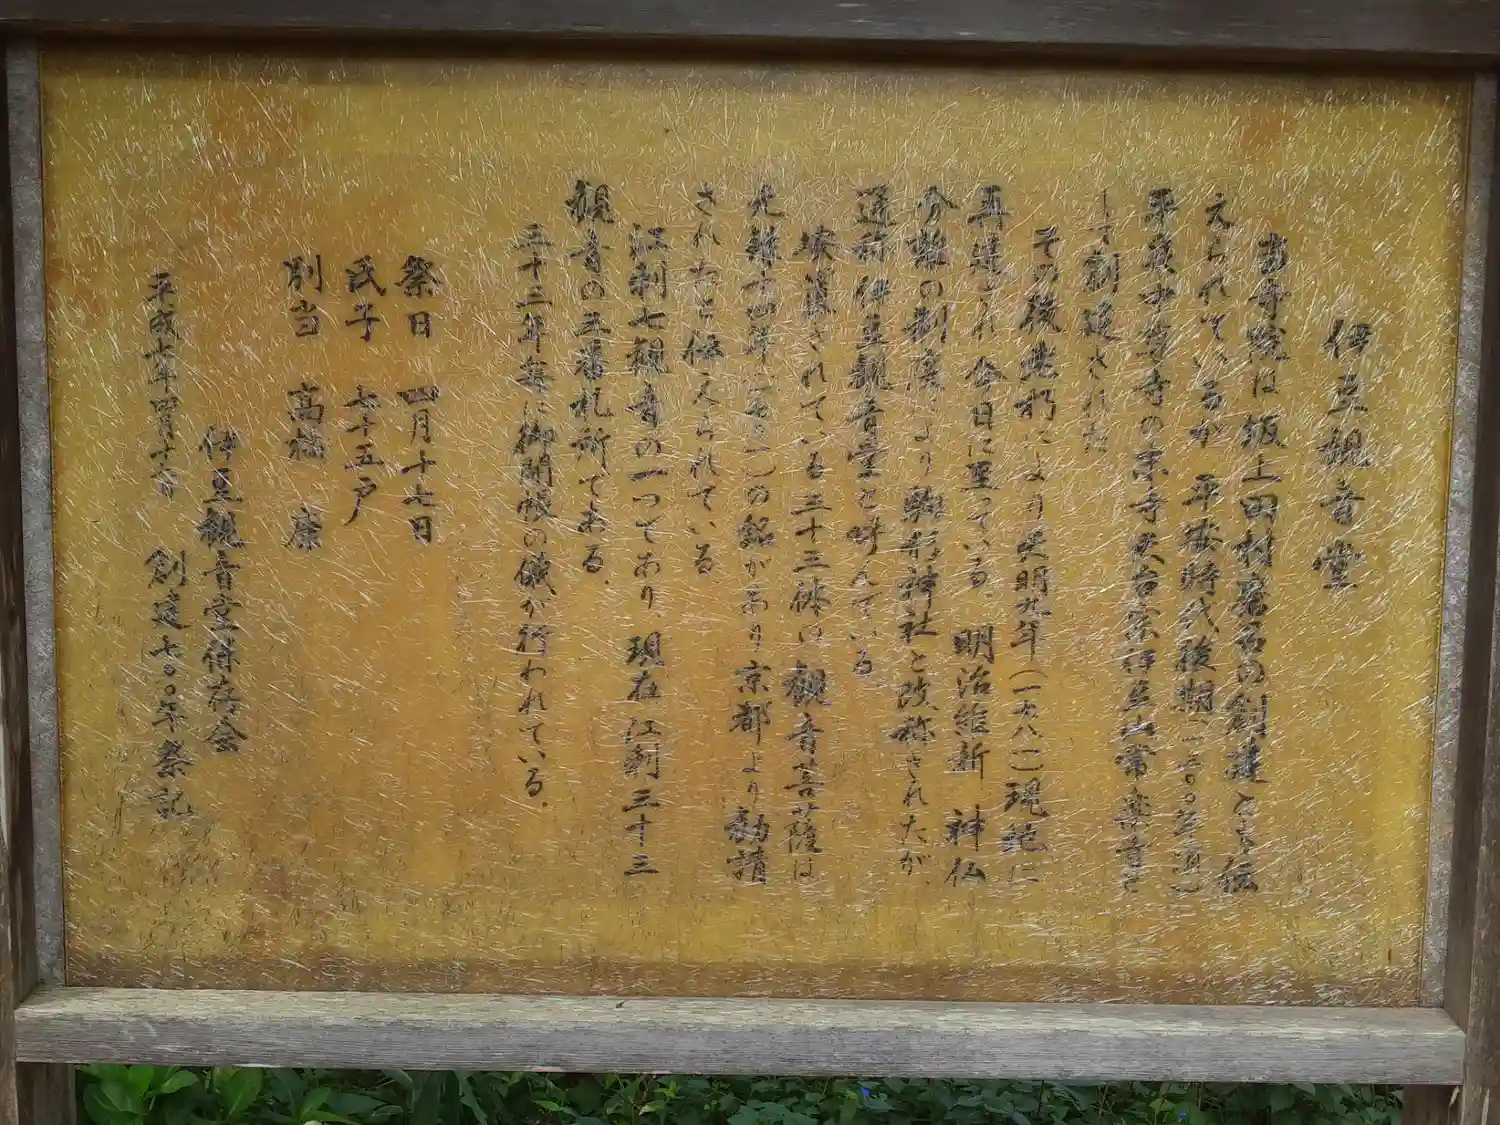 伊豆観音堂
当寺院は坂上田村麿呂の創建とも伝
えられているが 平安時代後期(一三〇〇年頃)
平泉中尊寺の末寺天台宗伊豆山常楽寺と
して創造された
その後老朽により天明九年(一七八一)現地に
再建され 今日に至っている。 明治維新 神仏
分離の制度により 駒形神社と改称されたが、
通称伊豆観音堂と呼んでいる
安置されている三十三体の観音菩薩は
元禄十四年(一七〇一)の銘があり京都より勧請
されたと伝えられている。
江刺七観音の一つであり、現在江刺三十三
観音の五番札所である。
三十三年毎に御開帳の儀が行われている。
祭日 四月十七日
氏子 七十五戸
別当 高橋 康
伊豆観音堂保存会
平成七年四月十六日 創建七〇〇年祭記